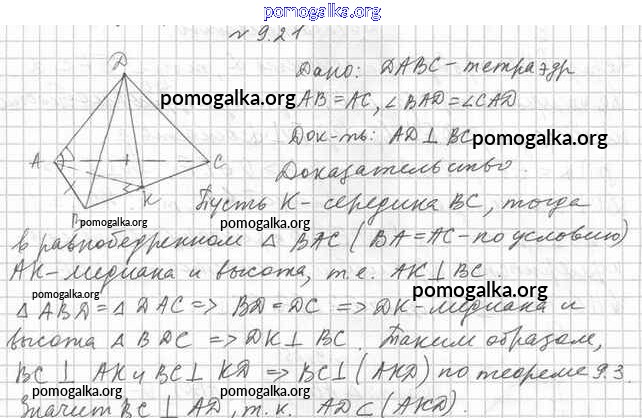 pomogalka.org
№ 9.21
D
Дано: DABC - тетраэдр
pomogalka.org AB = AC, ∠BAD = ∠CAD
Док-ть: AD ⊥ BC pomogalka.org
A C
K
B
Доказательство.
Пусть K - середина BC, тогда
pomogalka.org pomogalka.org
в равнобедренном △ BAC (BA = AC - по условию)
AK - медиана и высота, т.е. AK ⊥ BC.
pomogalka.org pomogalka.org
△ ABD = △ DAC => BD = DC => DK - медиана и
высота △ BDC => DK ⊥ BC. Таким образом,
BC ⊥ AK и BC ⊥ KD => BC ⊥ (AKD) по теореме 9.3.
pomogalka.org pomogalka.org
Значит BC ⊥ AD, т.к. AD ⊂ (AKD).